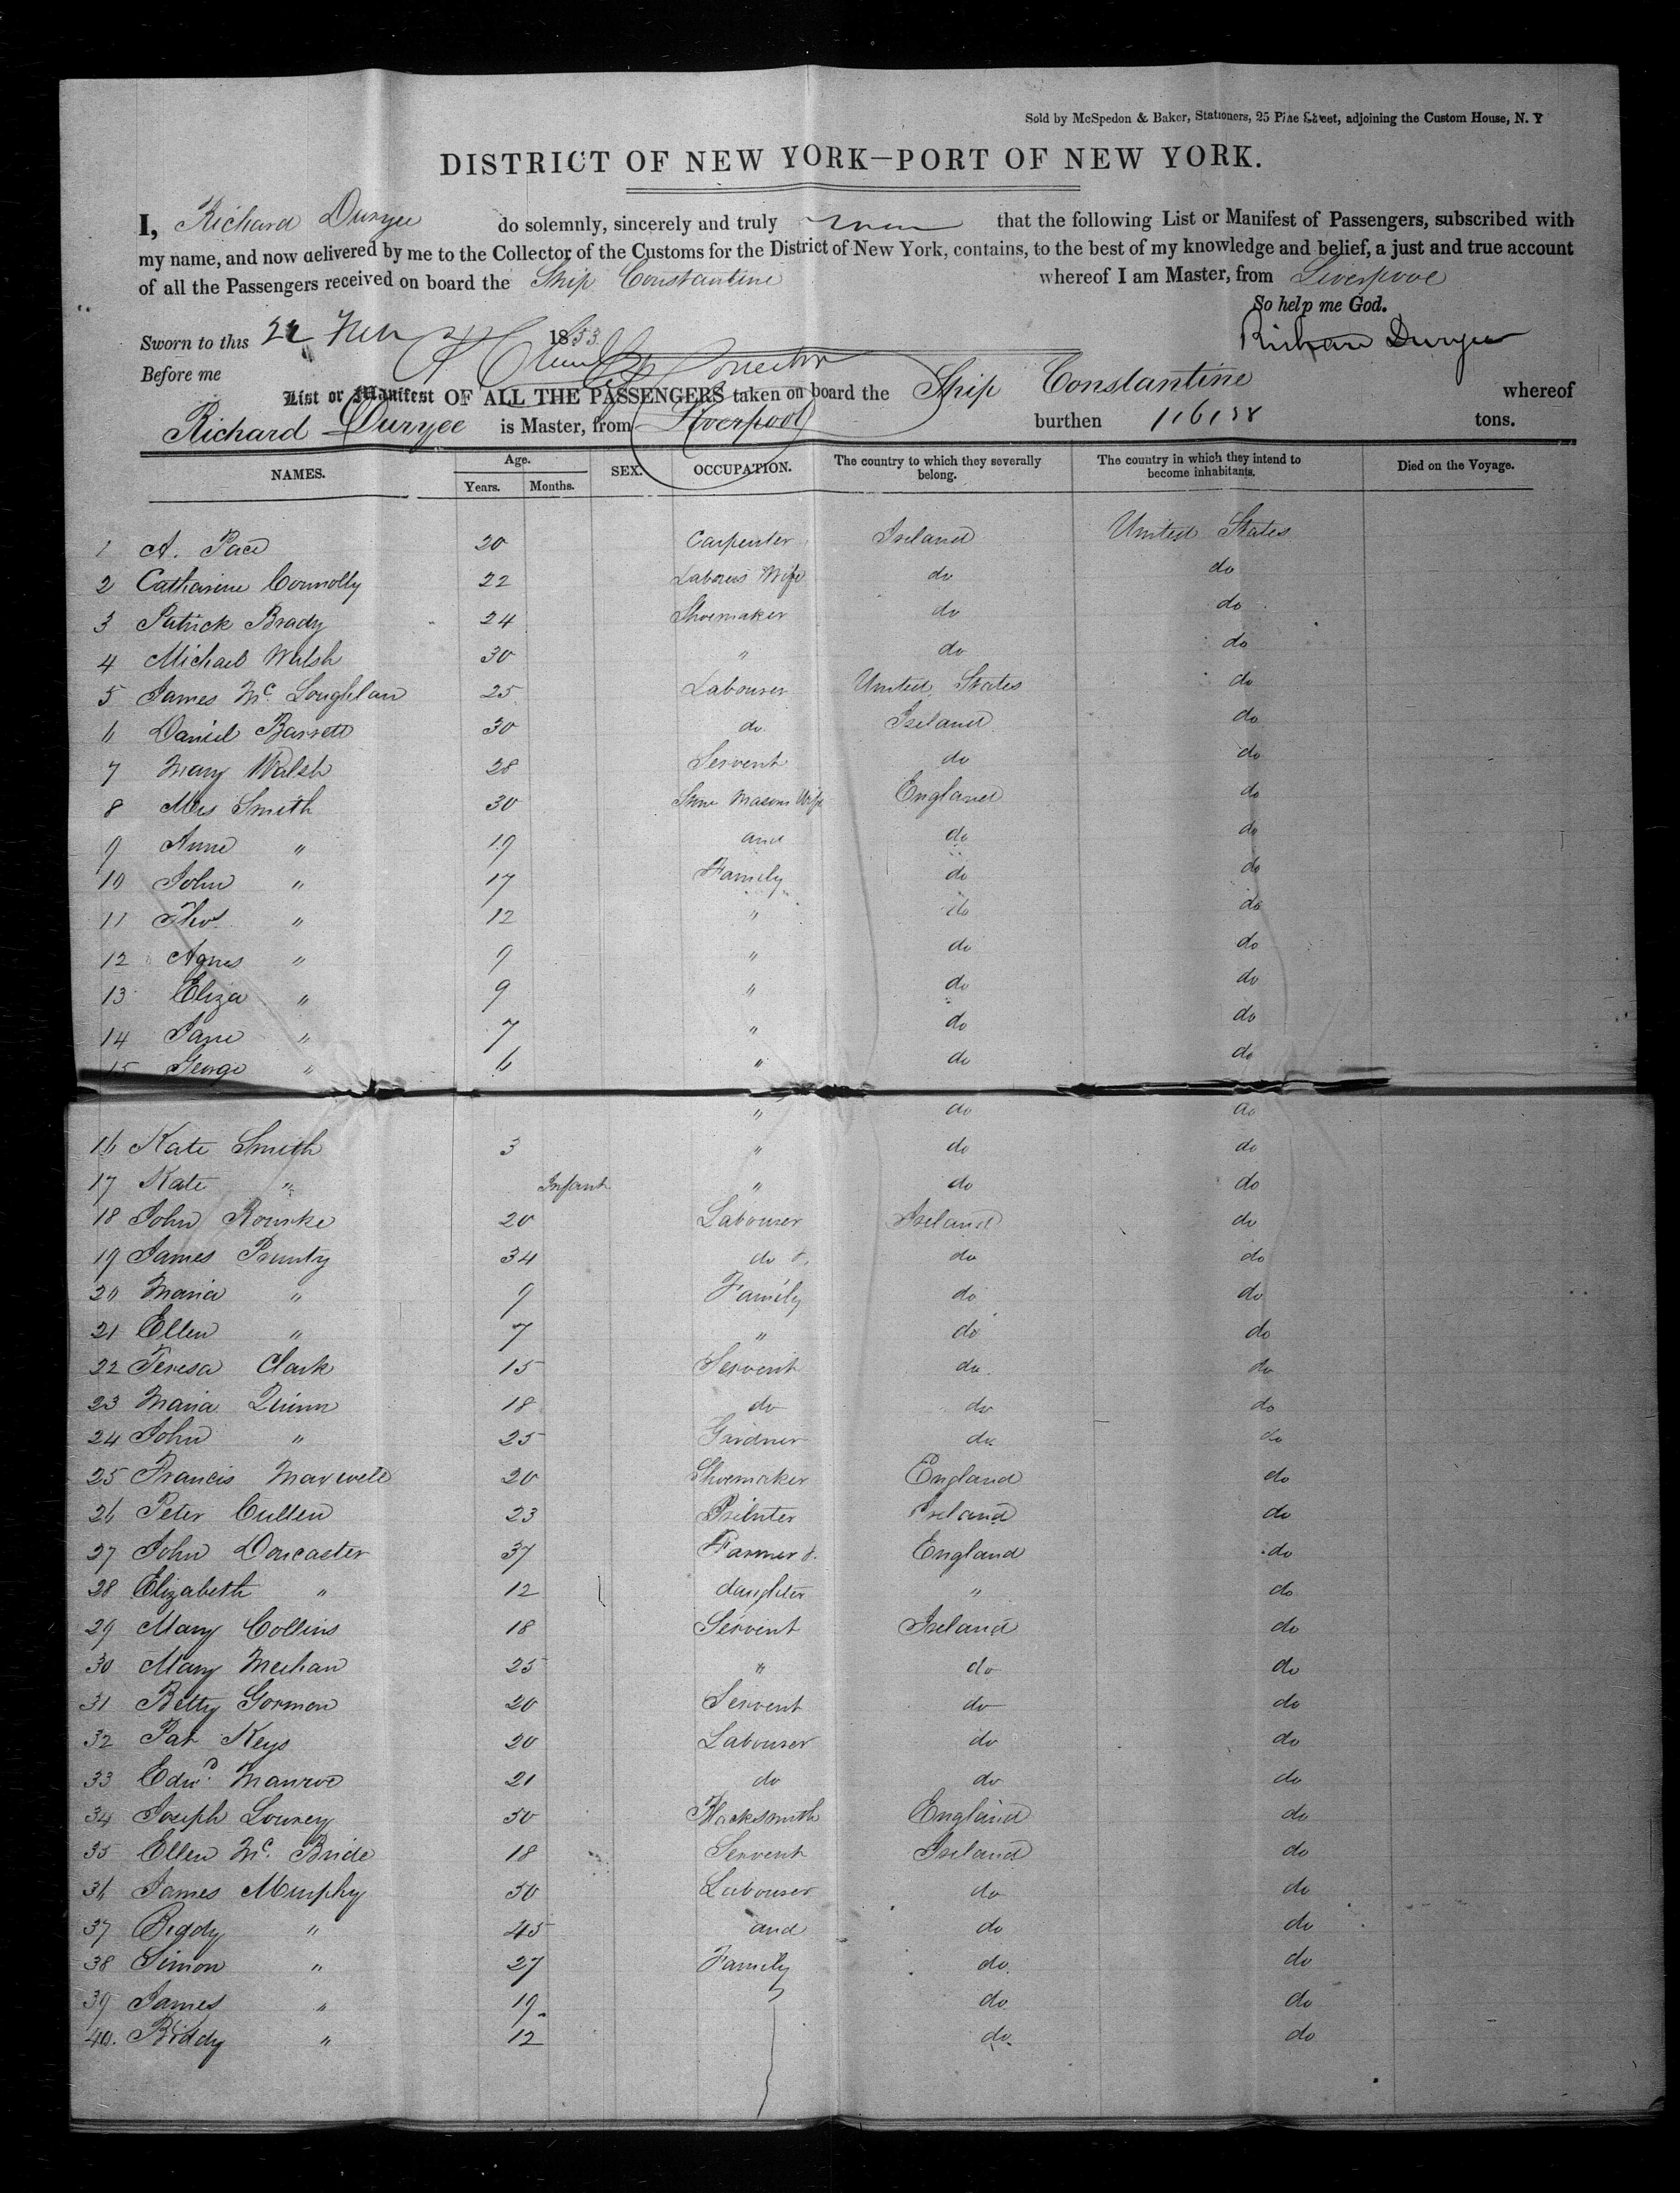 Sold by McSpedon & Baker, Stationers, 25 Pine Street, adjoining the Custom House, N. Y
DISTRICT OF NEW YORK—PORT OF NEW YORK.
I, Richard Duryee do solemnly, sincerely and truly that the following List or Manifest of Passengers, subscribed with
my name, and now delivered by me to the Collector of the Customs for the District of New York, contains, to the best of my knowledge and belief, a just and true account
of all the Passengers received on board the Ship Constantine whereof I am Master, from Liverpool
So help me God.
Sworn to this 1853 Richard Duryee
Before me
List or Manifest OF ALL THE PASSENGERS taken on board the Ship Constantine whereof
Richard Duryee is Master, from Liverpool burthen tons.
NAMES. Age. Years. Months. SEX. OCCUPATION. The country to which they severally belong. The country in which they intend to become inhabitants. Died on the Voyage.
1 A. Pace 20 Carpenter Ireland United States
2 Catharine Connolly 22 Labourers Wife do do
3 Patrick Brady 24 Shoemaker do do
4 Michael Walsh 30 " do do
5 James Mc. Loughlan 25 Labourer United States do
6 Daniel Barrett 30 do Ireland do
7 Mary Walsh 28 Servent do do
8 Mrs Smith 30 Stone Masons Wife England do
9 Anne " 19 and do do
10 John " 17 Family do do
11 Thos. " 12 " do do
12 Agnes " 9 " do do
13 Eliza " 9 " do do
14 Jane " 7 " do do
15 George " 6 " do do
" do do
16 Kate Smith 3 " do do
17 Kate " Infant " do do
18 John Rourke 20 Labourer Ireland do
19 James Prunty 34 do &. do do
20 Maria " 9 Family do do
21 Ellen " 7 " do do
22 Teresa Clark 15 Servent do do
23 Maria Quinn 18 do do do
24 John " 25 Gardner do do
25 Francis Maxwell 20 Shoemaker England do
26 Peter Cullen 23 Printer Ireland do
27 John Doncaster 37 Farmer &. England do
28 Elizabeth " 12 daughter " do
29 Mary Collins 18 Servent Ireland do
30 Mary Meehan 25 " do do
31 Betty Gormon 20 Servent do do
32 Pat Keys 20 Labourer do do
33 Edwd. Manroe 21 do do do
34 Joseph Lowrey 30 Blacksmith England do
35 Ellen Mc. Bride 18 Servent Ireland do
36 James Murphy 50 Labourer do do
37 Biddy " 45 and do do
38 Simon " 27 Family do do
39 James " 19 " do do
40. Biddy " 12 do do